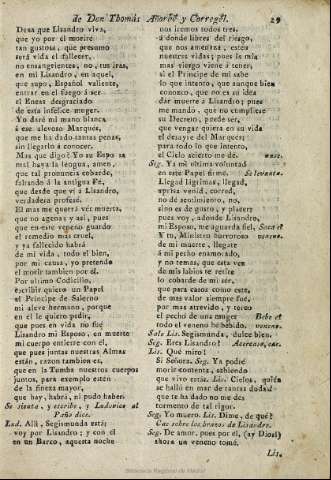 de Don Thomás Añorbe y Corregèl. 29
Dexa que Lisandro viva,
que yo por èl morirè
tan gustosa, que presumo
serà vida el fallecer,
no ensangrientes, no, tus iras,
en mi Lisandro, en aquel,
que supo, Español valiente,
entrar en el fuego à ser
el Eneas desgraciado
de esta infelice muger.
Yo darè mi mano blanca
à esse alevoso Marquès,
que me ha dado tantas penas,
sin llegarlo à conocer.
Mas què digo? Yo su Esposa
mal haya la lengua, amen,
que tal pronuncia cobarde,
faltando à la antigua Fè,
que desde que vì à Lisandro,
verdadera professè.
El mas me querrà vèr muerta,
que no agena; y assi, pues
que en este veneno guardo
el remedio mas cruel,
y ya fallecido habrà
de mi vida, todo el bien,
por mi causa, yo pretendo
el morir tambien por èl.
Por ultimo Codicilo,
escribir quiero un Papel
al Principe de Salerno
mi aleve hermano, porque
en èl le quiero pedir,
que pues en vida no fuè
Lisandro mi Esposo, en muerte
mi cuerpo entierre con èl,
que pues juntas nuestras Almas
estàn, razon tambien es,
que en la Tumba nuestros cuerpos
juntos, para exemplo estèn
de la fineza mayor,
que hay, habrà, ni pudo haber.
Se sienta, y escribe, y Ludovico al
Paño dice.
Lud. Allì, Segismunda està;
voy por Lisandro; y con èl
en un Barco, aquesta noche
nos iremos todos tres,
à donde libres del riesgo,
que nos amenaza, estèn
nuestras vidas; pues is mia
mas riesgo viene à tener,
si el Principe de mì sabe
lo que intento, que aunque bien
conozco, que no es su idea
dar muerte à Lisandro; pues
me mandò, que no complicase
su Decreto, puede ser,
que vengar quiera en su vida
el desayre del Marquès;
para todo lo que intento,
el Cielo acierto me dè. vase.
Seg. Ya mi ultima voluntad
en este Papel firmè. Se levanta.
Llegad lagrimas, llegad,
aprisa venid, corred,
no de sentimiento, no,
sino es de gusto, y placer;
pues voy, adonde Lisandro,
mi Esposo, me aguarda fiel, Saca el
Y tu, Ministro horroroso veneno.
de mi muerte, llegate
à mi pecho enamorado,
y no temas, que esta vez
de mis labios te retire
lo cobarde de mi ser,
que para casos como este,
de mas valor siempre fuè,
por mas atrevido, y terco
el pecho de una muger Bebe el
todo el veneno he bebido. veneno.
Sale Lis. Segismunda, dulce bien.
Seg. Eres Lisandro? Acercase, cae.
Lis. Què miro!
Si Señora. Seg. Ya podiè
morir contenta, sabiendo
que vivo estàs. Lis. Cielos, quièn
se hallò en mar de tantas dudas
que te ha dado no me des
tormento de tal rigor.
Seg. Yo muero. Lis. Dime, de què?
Cae sobre los brazos de Lisandro.
Seg. De amor, pues por èl, (ay Dios!)
ahora un veneno tomè.
Lis.
Biblioteca Regional de Madrid